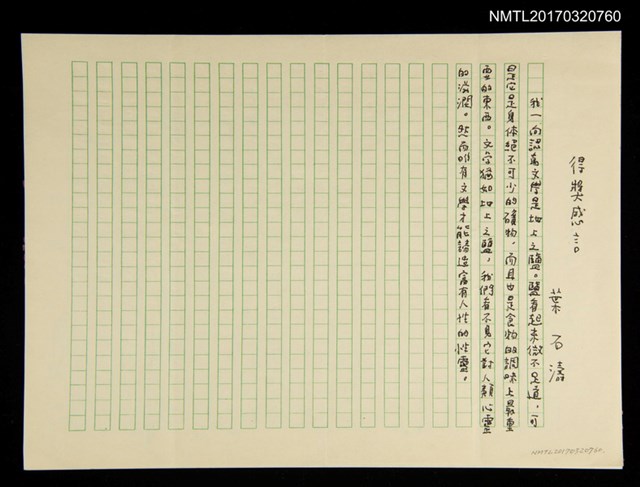 NMTL20170320760
得獎感言
葉石濤
我一向認為文學是地上之鹽。鹽看起來微不足道,可
是它是身体絕不可少的礦物,而且也是食物的調味上最重
要的東西。文學猶如地上之鹽,我們看不見它對人類心靈
的滋潤。然而唯有文學才能鑄造富有人性的性靈。
NMTL20170320760